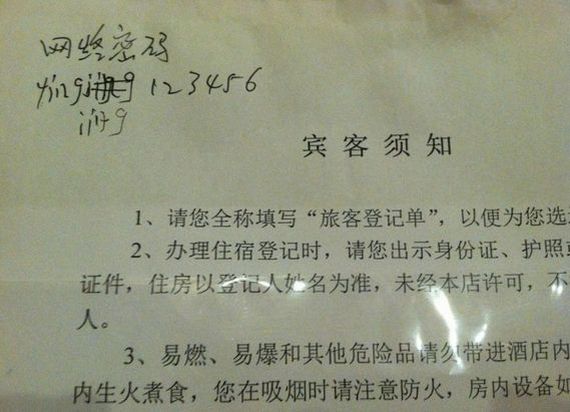 网络密码
123456
宾客须知
1、请您全称填写“旅客登记单”，以便为您选
2、办理住宿登记时，请您出示身份证、护照或
证件，住房以登记人姓名为准，未经本店许可，不
人。
3、易燃、易爆和其他危险品请勿带进酒店内
内生火煮食，您在吸烟时请注意防火，房内设备如